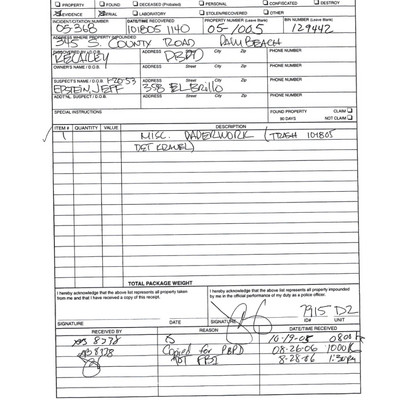 PROPERTY FOUND DECEASED (Probated) PERSONAL CONFISCATED DESTROY
EVIDENCE TRIAL LABORATORY STOLEN/RECOVERED OTHER
INCIDENT/CITATION NUMBER DATE/TIME RECOVERED PROPERTY NUMBER (Leave Blank) BIN NUMBER (Leave Blank)
05368 101805 1140 05-1005 129442
ADDRESS WHERE PROPERTY IMPOUNDED
345 S. COUNTY ROAD PALM BEACH
ADDRESS Street City PHONE NUMBER
RECAREY PBPD
OWNER'S NAME / D.O.B. ADDRESS Street City PHONE NUMBER
SUSPECT'S NAME / D.O.B. 1-20-53 ADDRESS Street City PHONE NUMBER
EPSTEIN, JEFF 358 EL BRILLO
ADD'TNL SUSPECT / D.O.B. ADDRESS Street City PHONE NUMBER
SPECIAL INSTRUCTIONS FOUND PROPERTY CLAIM
90 DAYS NOT CLAIM
ITEM # QUANTITY VALUE DESCRIPTION
1 MISC. PAPERWORK (TRASH 101805
DET KRAUEL)
TOTAL PACKAGE WEIGHT
I hereby acknowledge that the above list represents all property taken
from me and that I have received a copy of this receipt.
I hereby acknowledge that the above list represents all property impounded
by me in the official performance of my duty as a police officer.
7915 D2
SIGNATURE DATE SIGNATURE ID# UNIT
RECEIVED BY REASON DATE/TIME RECEIVED
8278 10-19-05 0801
8278 Copied for PBPD 08-26-06 1000
FBI 8-28-06 1:30pm